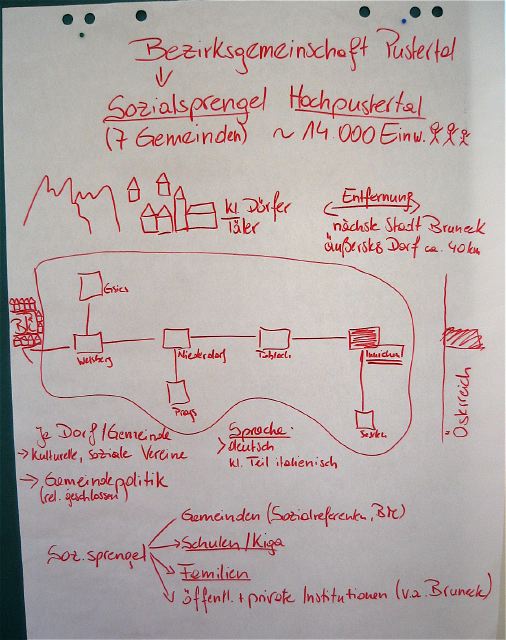 Bezirksgemeinschaft Pustertal
Sozialsprengel Hochpustertal
(7 Gemeinden) ~ 14.000 Einw.
kl. Dörfer
Täler
Entfernung
nächste Stadt Bruneck
äußerstes Dorf ca. 40 km
Gsies
BK
Welsberg
Niederdorf
Toblach
Innichen
Prags
Sexten
Österreich
je Dorf/Gemeinde
→ kulturelle, soziale Vereine
→ Gemeindepolitik
(rel. geschlossen)
Sprache:
deutsch
kl. Teil italienisch
Soz.sprengel
Gemeinden (Sozialreferenten, BK)
Schulen/Kiga
Familien
öffentl. + private Institutionen (v.a. Bruneck)